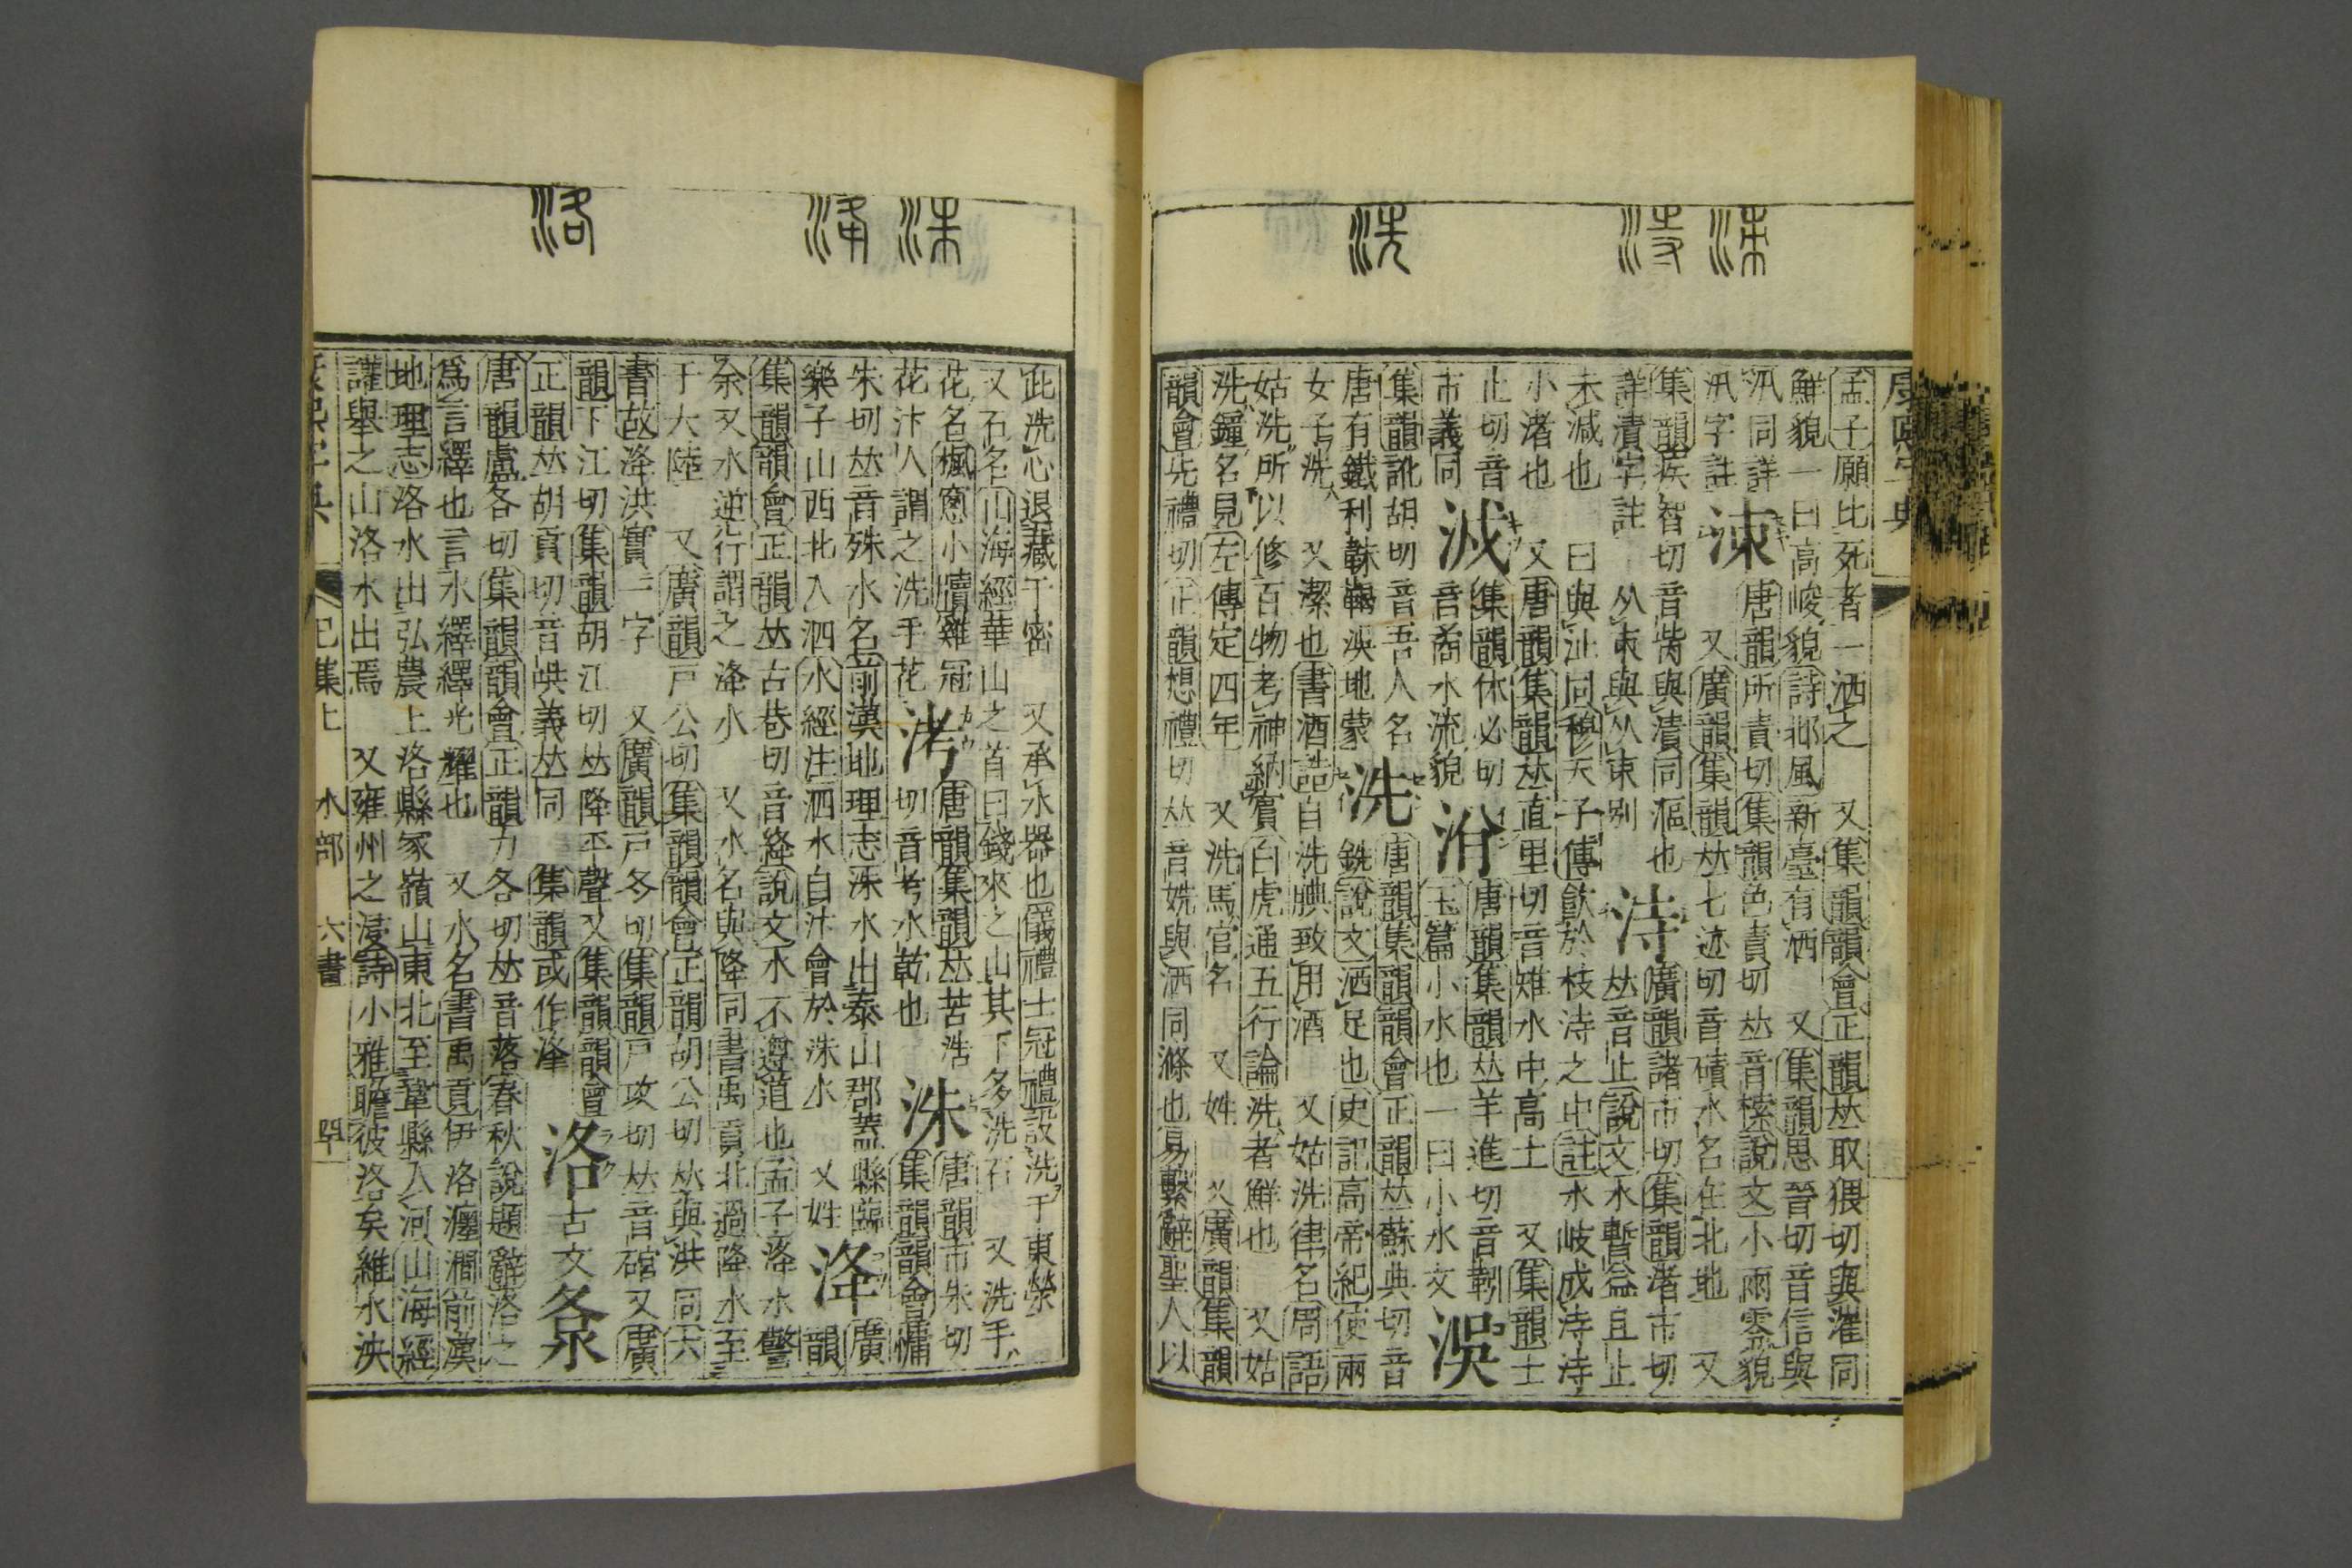 康熙字典
洓 洔 洗
孟子願比死者一洒之 又集韻韻會正韻𠀤取猥切與漼同
鮮貌一曰高峻貌詩邶風新臺有洒 又集韻思晉切音信與
汛同詳汛字註
洓 唐韻所責切集韻色責切𠀤音㮶說文小雨零貌
又廣韻集韻𠀤七迹切音磧水名在北地 又
集韻疾智切音眥與漬同漚也
詳漬字註 从朿與从束別
洔 廣韻諸市切集韻渚市切𠀤音止說文水暫益且止
未減也 曰與沚同穆天子傳飮於枝洔之中註水岐成洔洔
小渚也 又唐韻集韻𠀤直里切音雉水中高土 又集韻士
止切音市義同
㳚 集韻休必切音矞水流貌
洕 唐韻集韻𠀤羊進切音靷玉篇小水也一曰小水文
洖
集韻訛胡切音吾人名
唐有鐵利靺鞨泱地蒙
洗 唐韻集韻韻會正韻𠀤蘇典切音銑說文洒足也史記高帝紀使兩
女子洗 又潔也書酒誥自洗腆致用酒 又姑洗律名周語
姑洗所以修百物考神納賓白虎通五行論洗者鮮也 又姑
洗鐘名見左傳定四年 又洗馬官名 又姓 又廣韻集韻
韻會先禮切正韻想禮切𠀤音姺與洒同滌也易繫辭聖人以
洙 洚 洛
此洗心退藏于密 又承水器也儀禮士冠禮設洗于東榮
又石名山海經華山之首曰錢來之山其下多洗石 又洗手
花名楓窻小牘雞冠花汴人謂之洗手花
洘 唐韻集韻𠀤苦浩切音考水乾也
洙 唐韻市朱切集韻韻會慵
朱切𠀤音殊水名前漢地理志洙水出泰山郡蓋縣臨
樂子山西北入泗水經注泗水自汴會於洙水 又姓
洚 廣韻
集韻韻會正韻𠀤古巷切音絳說文水不遵道也孟子洚水警
余又水逆行謂之洚水 又水名與降同書禹貢北過降水至
于大陸 又廣韻戸公切集韻韻會正韻胡公切𠀤與洪同六
書故洚洪實一字 又廣韻戸冬切集韻戸攻切𠀤音碹又廣
韻下江切集韻胡江切𠀤降平聲又集韻韻會
正韻𠀤胡貢切音哄義𠀤同 集韻或作浲
洛 古文
唐韻盧各切集韻韻會正韻力各切𠀤音落春秋說題辭洛之
爲言繹也言水繹繹光耀也 又水名書禹貢伊洛瀍澗前漢
地理志洛水出弘農上洛縣冢嶺山東北至鞏縣入河山海經
讙舉之山洛水出焉 又雍州之浸詩小雅瞻彼洛矣維水泱
康熙字典 巳集上 水部 六畫